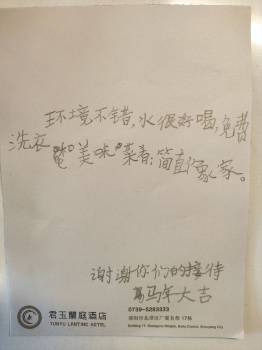 环境不错,水很好喝,免费
洗衣"美味"菜肴;简直像家。
谢谢你们的接待
马年大吉
君玉蘭庭酒店
YUNYU LANTING HOTEL
0739-5283333